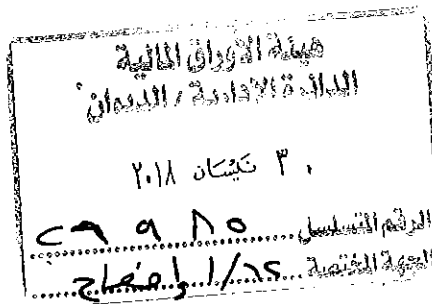 هيئة الأوراق المالية
الدائرة الإدارية / الديوان
٣٠ نيسان ٢٠١٨
الرقم التسلسل ٢٩٨٥
الجهة المختصة ١/٦٢ إفصاح